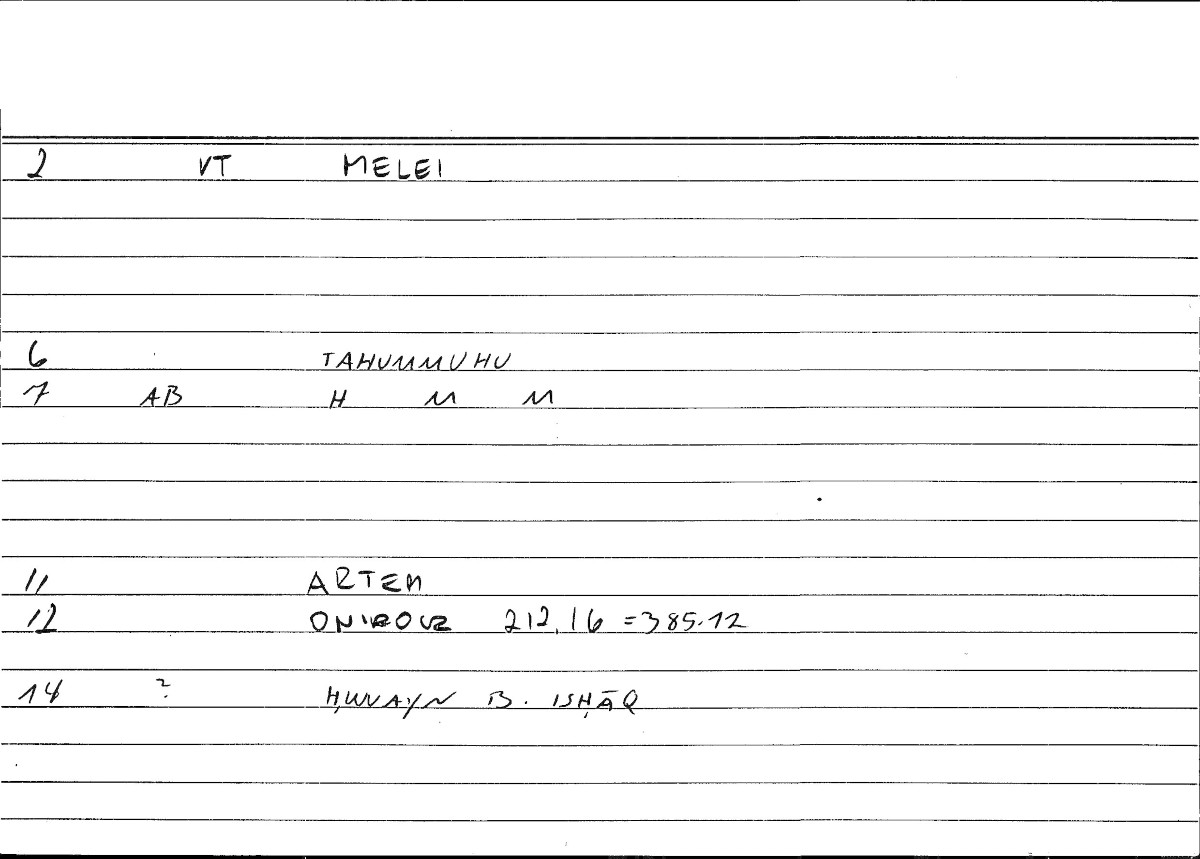 2 VT MELEI
6 TAHUMMUHU
7 AB H M M
11 ARTEM
12 ONIROCR 212,16 = 385.12
14 ? ḤUNAYN B. ISḤĀQ